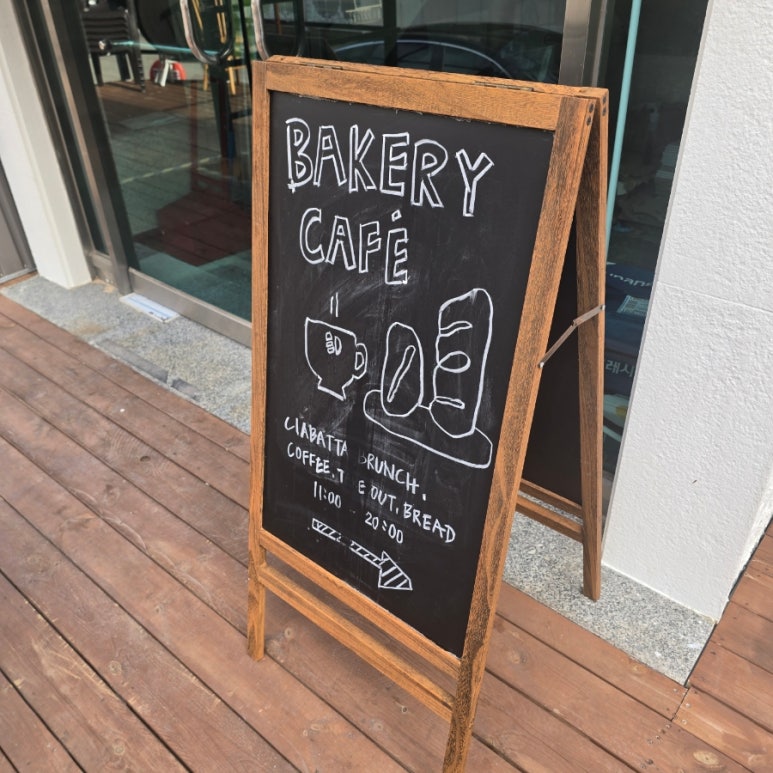 BAKERY
CAFÉ
CIABATTA BRUNCH.
COFFEE. T E OUT. BREAD
11:00 - 20:00